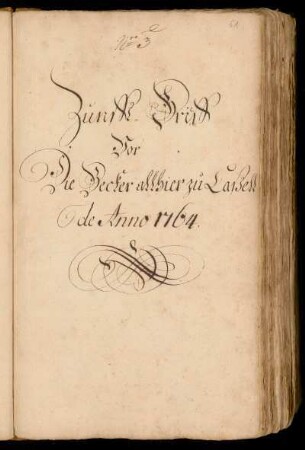 No. 3
Zunfft-Brieff
Vor
Die Becker allhier zu Cassell
de Anno 1764.